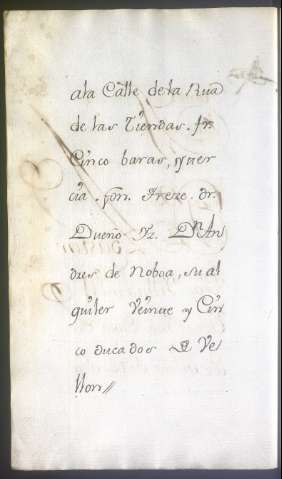 ala Calle de la Rua
de las Tiendas. fr.
Cinco baras, y ter
cia. fon. Treze. dr.
Dueño Dn An
dres de Noboa, su al
quiler Veinte y Cin
co ducados de Ve
llon